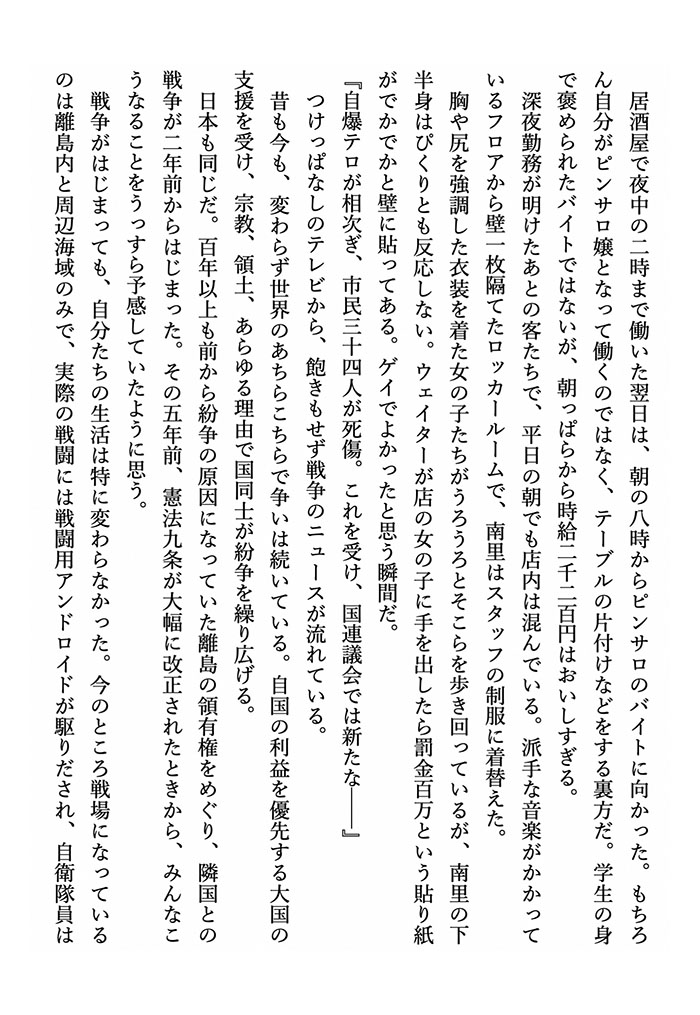 居酒屋で夜中の二時まで働いた翌日は、朝の八時からピンサロのバイトに向かった。もちろ
ん自分がピンサロ嬢となって働くのではなく、テーブルの片付けなどをする裏方だ。学生の身
で褒められたバイトではないが、朝っぱらから時給二千二百円はおいしすぎる。
深夜勤務が明けたあとの客たちで、平日の朝でも店内は混んでいる。派手な音楽がかかって
いるフロアから壁一枚隔てたロッカールームで、南里はスタッフの制服に着替えた。
胸や尻を強調した衣装を着た女の子たちがうろうろとそこらを歩き回っているが、南里の下
半身はぴくりとも反応しない。ウェイターが店の女の子に手を出したら罰金百万という貼り紙
がでかでかと壁に貼ってある。ゲイでよかったと思う瞬間だ。
『自爆テロが相次ぎ、市民三十四人が死傷。これを受け、国連議会では新たな――』
つけっぱなしのテレビから、飽きもせず戦争のニュースが流れている。
昔も今も、変わらず世界のあちらこちらで争いは続いている。自国の利益を優先する大国の
支援を受け、宗教、領土、あらゆる理由で国同士が紛争を繰り広げる。
日本も同じだ。百年以上も前から紛争の原因になっていた離島の領有権をめぐり、隣国との
戦争が二年前からはじまった。その五年前、憲法九条が大幅に改正されたときから、みんなこ
うなることをうっすら予感していたように思う。
戦争がはじまっても、自分たちの生活は特に変わらなかった。今のところ戦場になっている
のは離島内と周辺海域のみで、実際の戦闘には戦闘用アンドロイドが駆りだされ、自衛隊員は